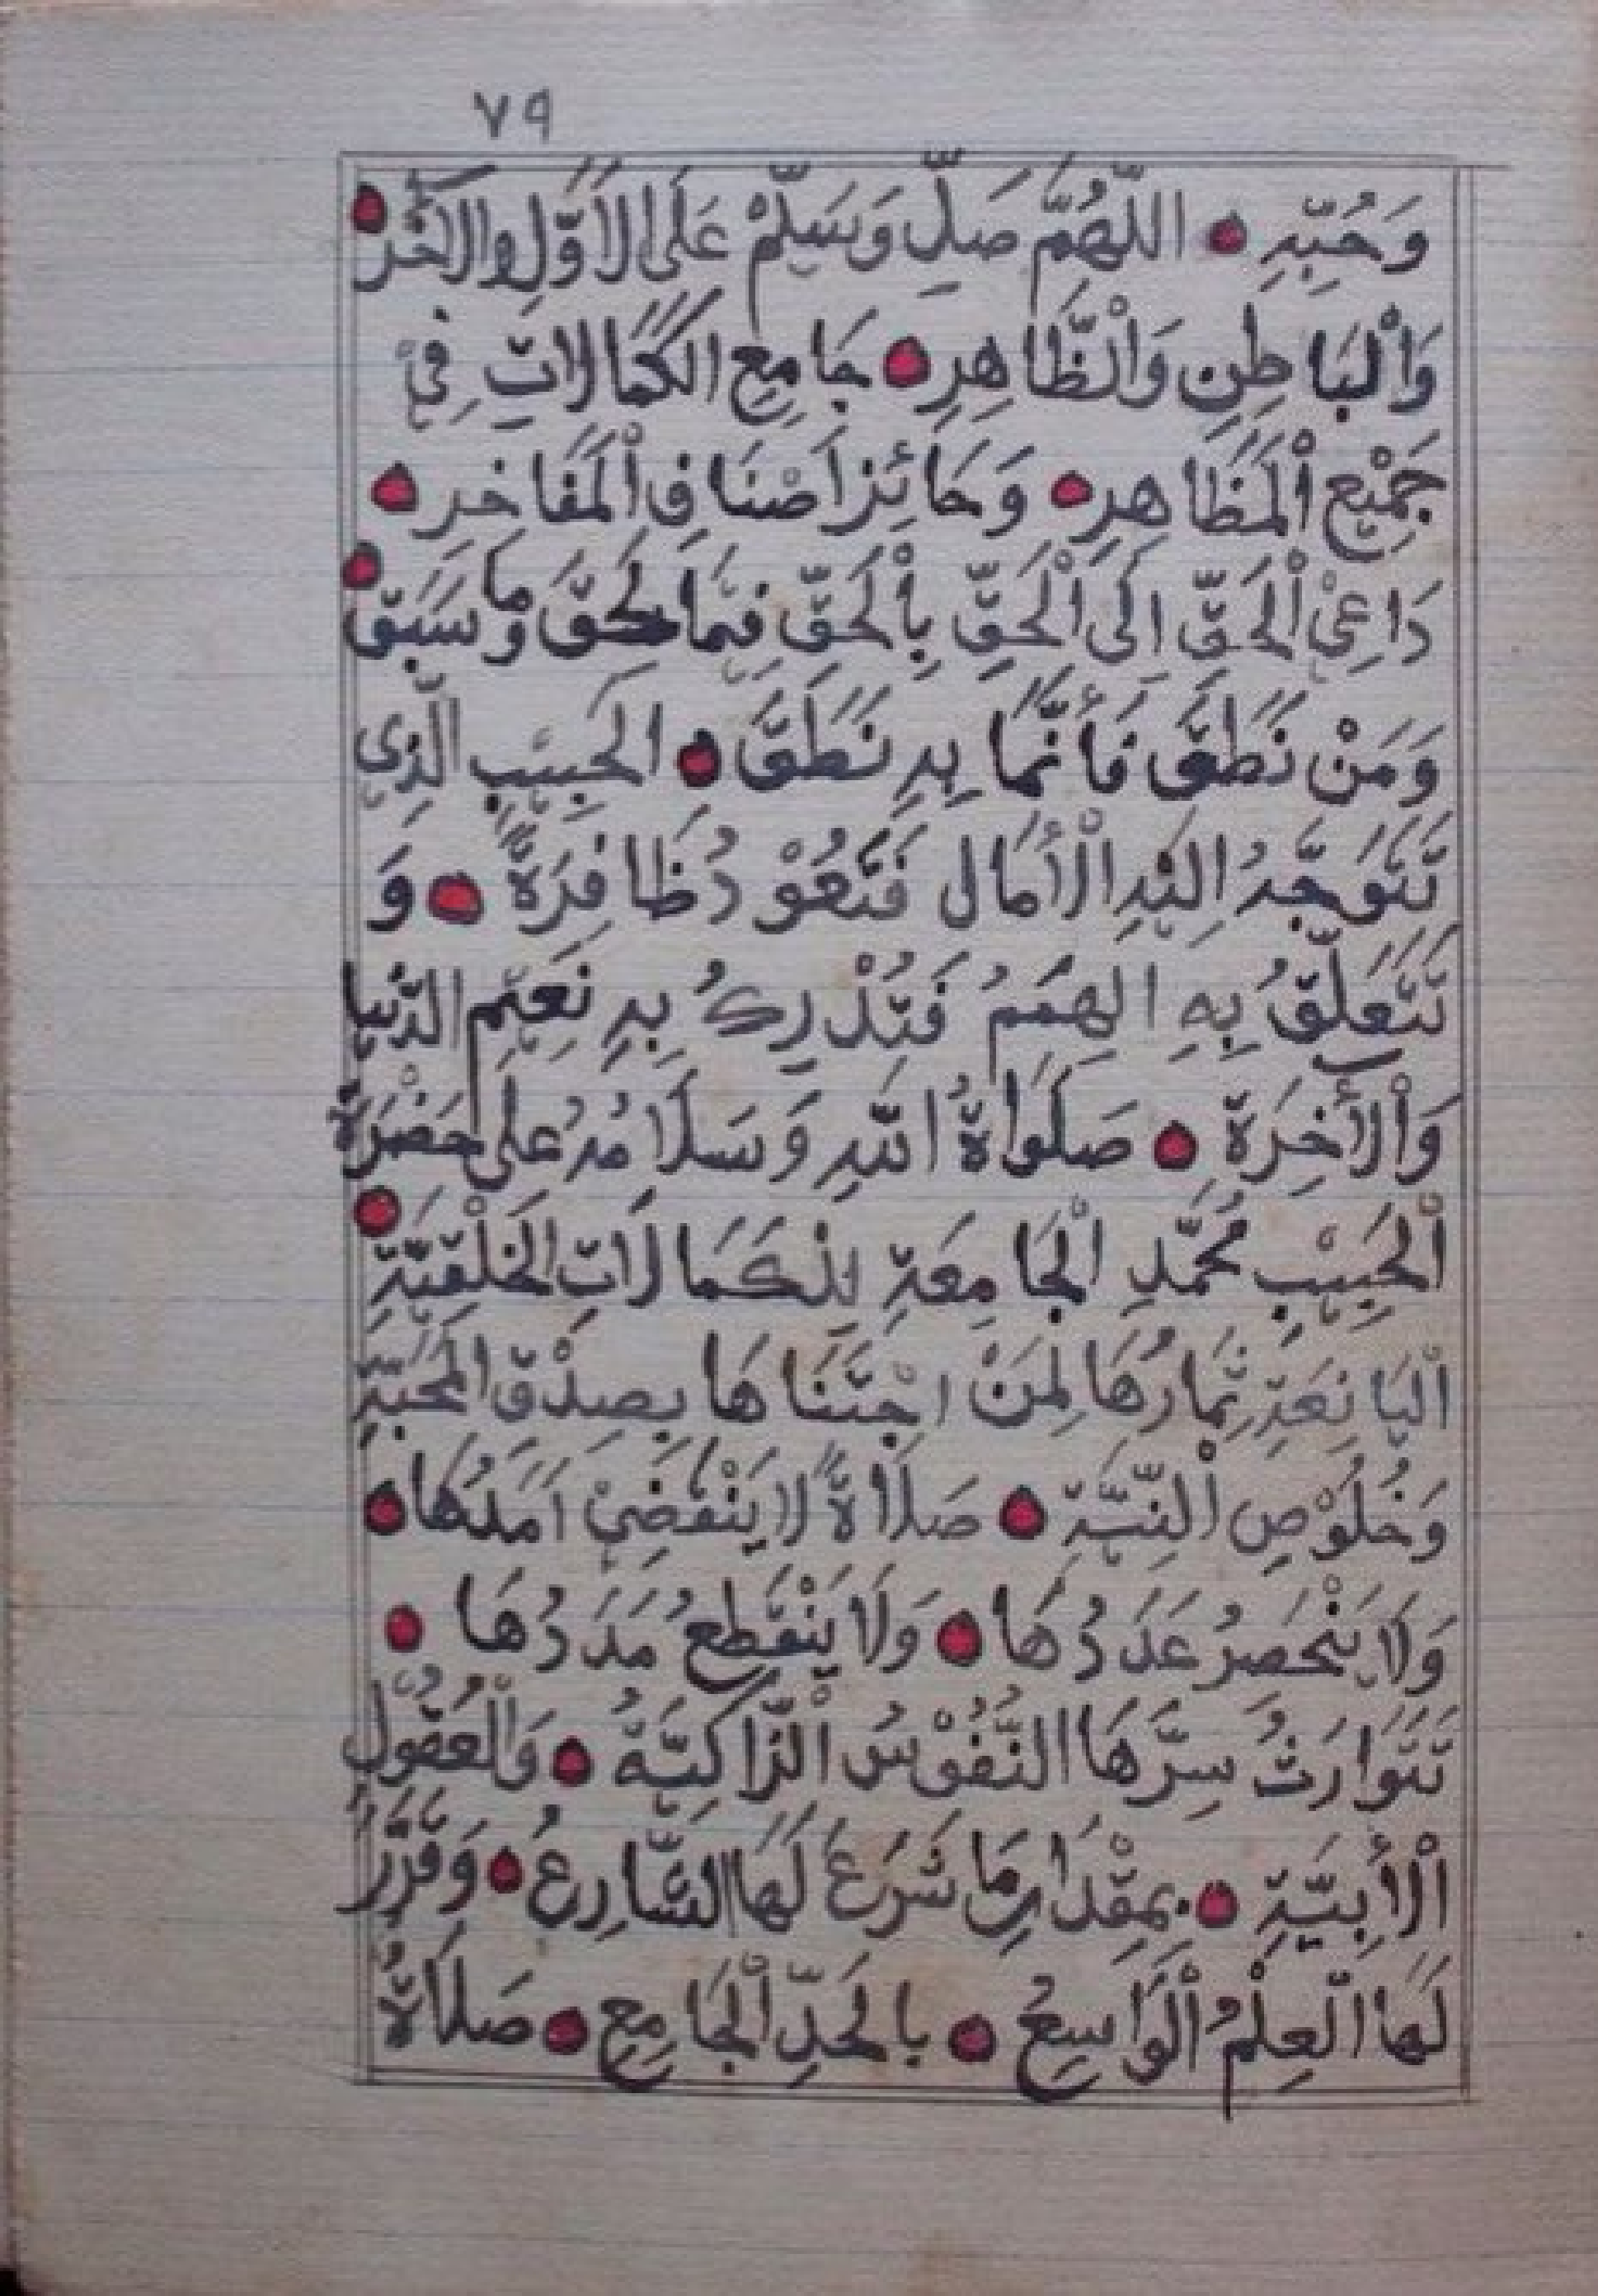 ٧٩
وَحُبِّهِ • اللّٰهُمَّ صَلِّ وَسَلِّمْ عَلَى الْاَوَّلِ وَالْاٰخِرِ •
وَالْبَاطِنِ وَالْظَّاهِرِ • جَامِعِ الكَمَالَاتِ فِيْ
جَمِيْعِ الْمَظَاهِرِ • وَحَائِزِ اَصْنَافِ الْمَفَاخِرِ •
دَاعِيْ الْحَقِّ اِلَى الْحَقِّ بِالْحَقِّ فِيْمَا لَحِقَ وَمَا سَبَقَ •
وَمَنْ نَطَقَ فَأَنَّمَا بِهِ نَطَقَ • الحَبِيْبِ الَّذِيْ
تَتَوَجَّهُ اِلَيْهِ الْأَمَال فَتَعُوْدُ ظَافِرَةً • وَ
تَتَعَلَّقُ بِهِ الهِمَمُ فَتُدْرِكُ بِهِ نَعِيْمِ الدُّنْيَا
وَالْأَخِرَةِ • صَلَوَاةُ اللّٰهِ وَسَلَامُهُ عَلَى حَضْرَةِ
الْحَبِيْبِ مُحَمَّدٍ الْجَامِعَةِ لِلْكَمَالَاتِ الخَلْقِيَّةِ •
الْيَانِعَةِ ثِمَارُهَا لِمَنْ اجْتَنَاهَا بِصِدْقِ الْمَحَبَّةِ
وَخُلُوْصِ الْنِيَّةِ • صَلَاةً لَا يَنْقَضِيْ اَمَدُهَا •
وَلَا يَنْحَصِرُ عَدَدُهَا • وَلَا يَنْقَطِعُ مَدَدُهَا •
تَتَوَارَثُ سِرَّهَا النُّفُوْسُ الْزَّاكِيَّةُ • وَالْعُقُوْلُ
الْأَبِيَّةِ • بِمِقْدَارِ مَا شَرَعَ لَهَا الشَّارِعُ • وَقَرَّرَ
لَهَا الْعِلْمُ الْوَاسِعُ • بِالحَدِّ الْجَامِعِ • صَلَاةً